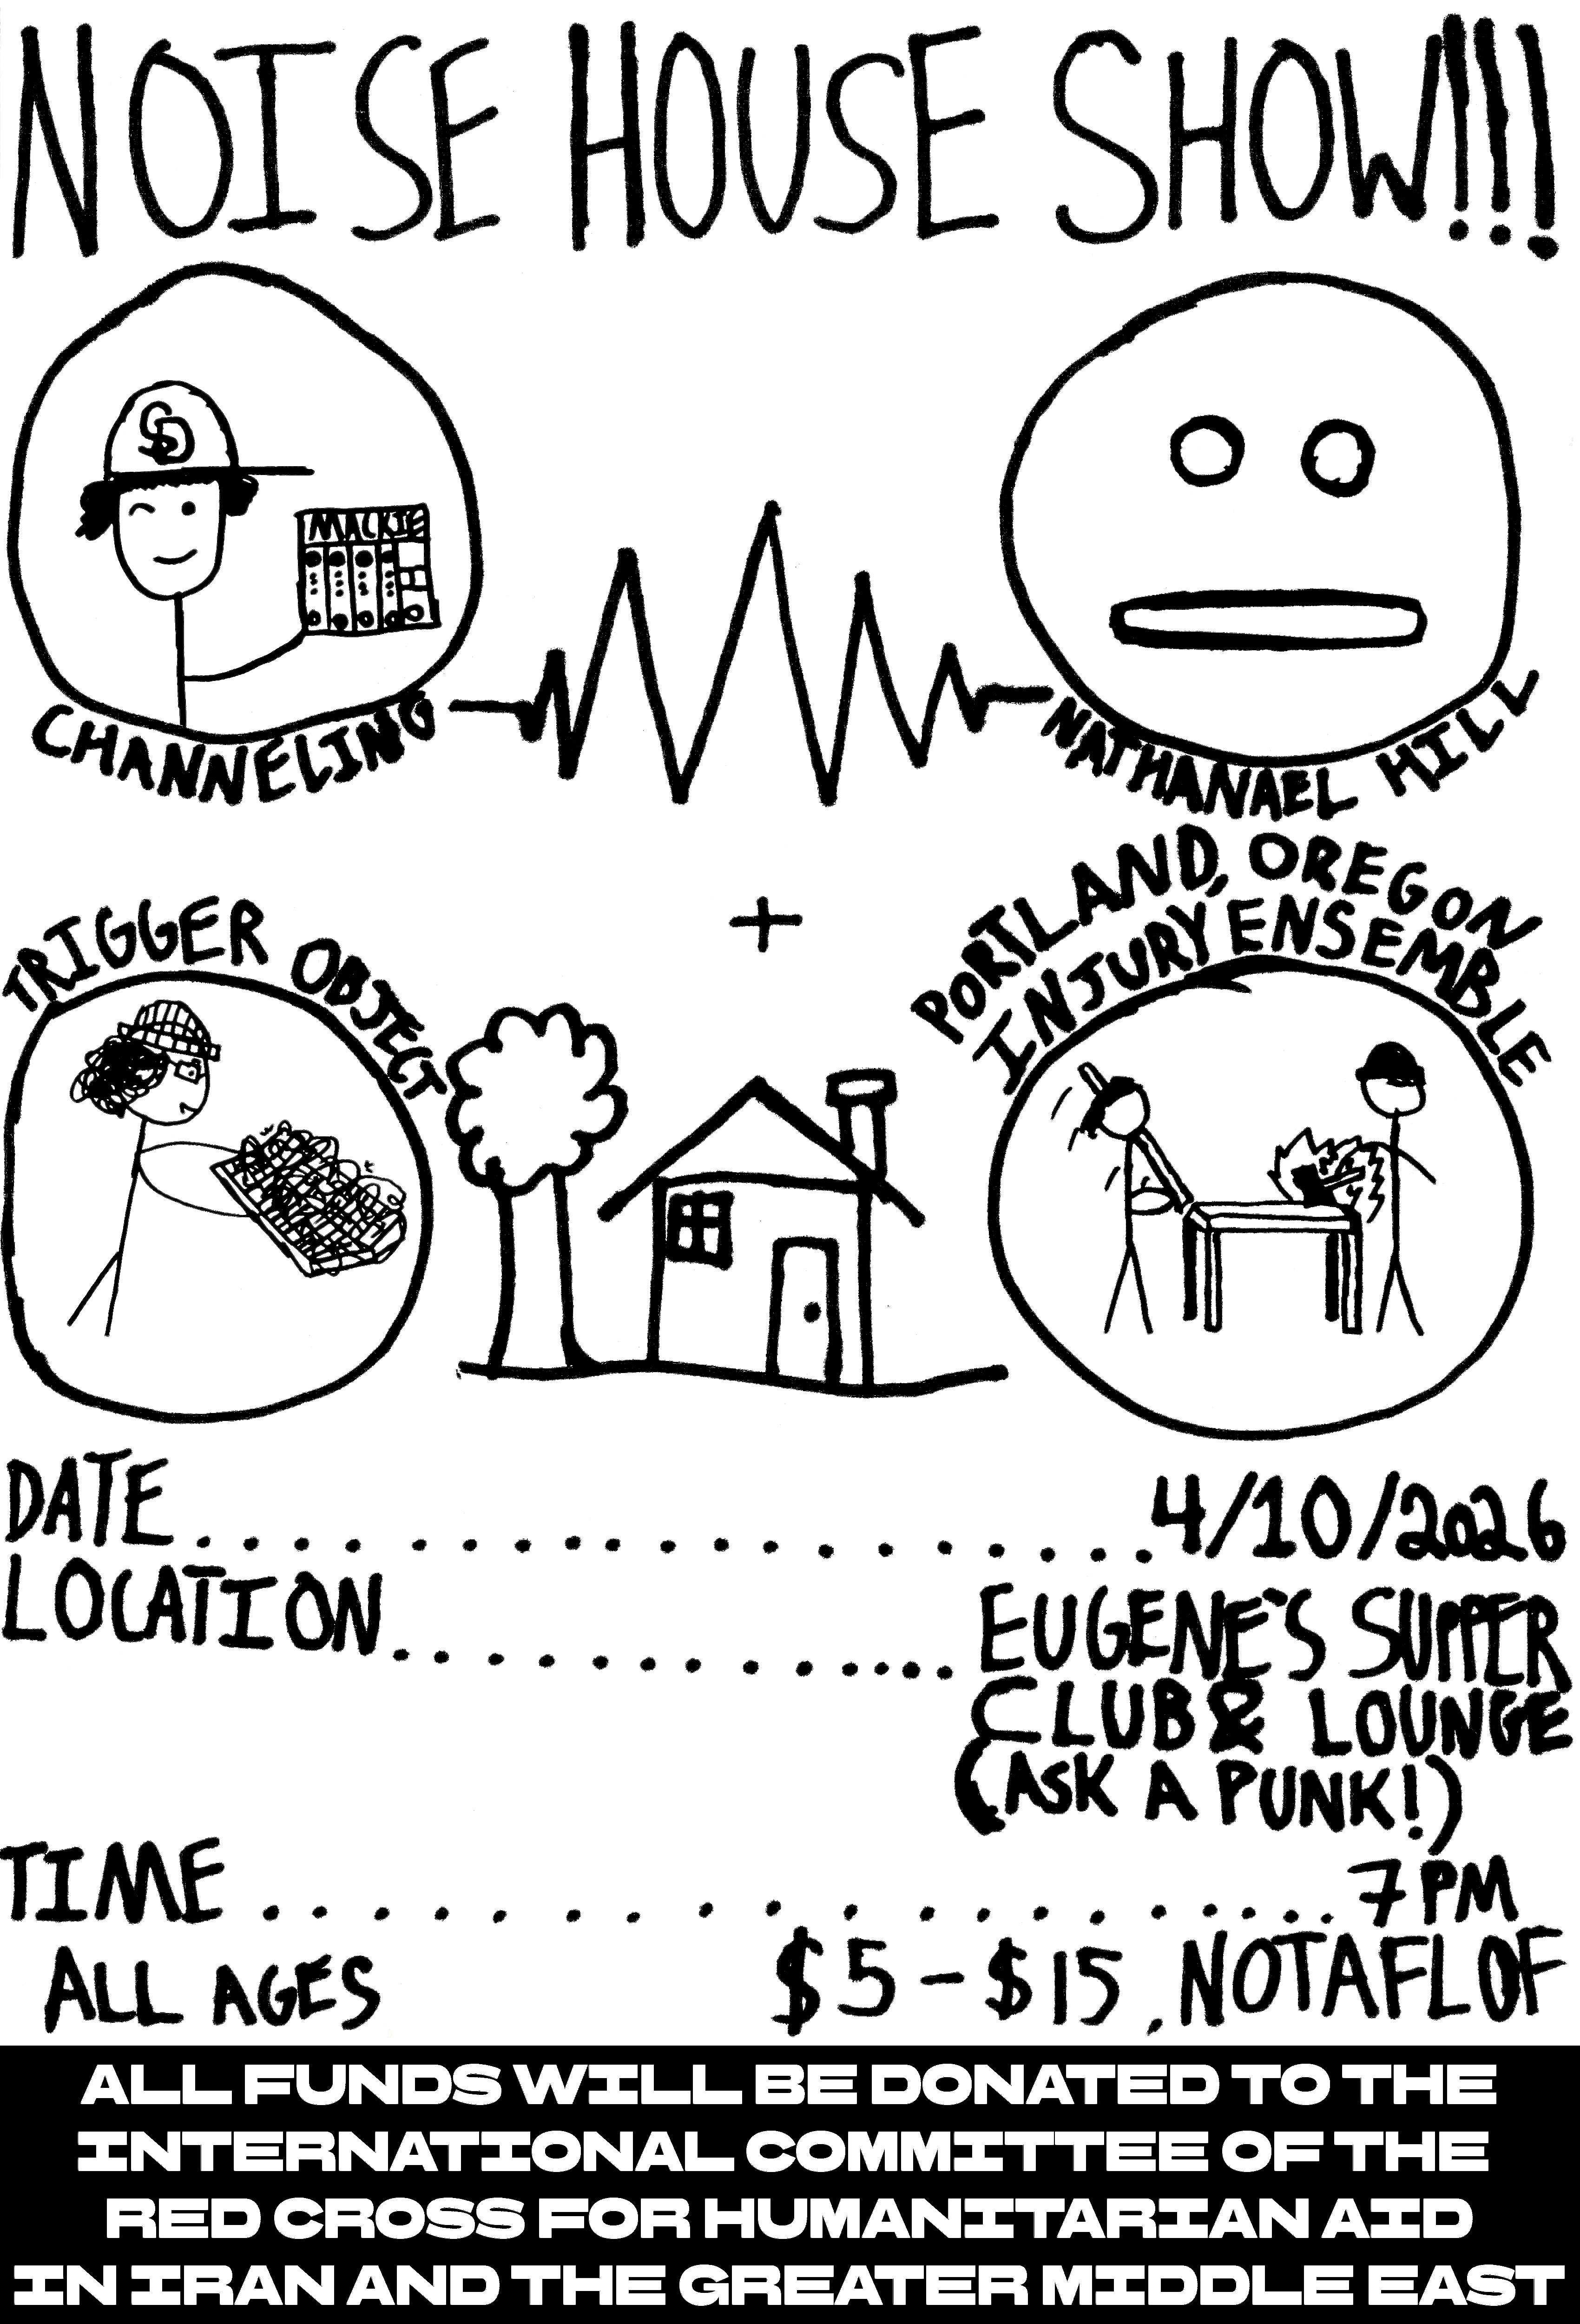 NOISE HOUSE SHOW!!!
SD
MACKIE
CHANNELING
NATHANAEL HILL
+
TRIGGER OBJECT
PORTLAND, OREGON
INJURY ENSEMBLE
DATE....................4/10/2026
LOCATION..............EUGENE'S SUPPER
CLUB & LOUNGE
(ASK A PUNK!)
TIME....................7PM
ALL AGES $5-$15, NOTAFLOF
ALL FUNDS WILL BE DONATED TO THE
INTERNATIONAL COMMITTEE OF THE
RED CROSS FOR HUMANITARIAN AID
IN IRAN AND THE GREATER MIDDLE EAST